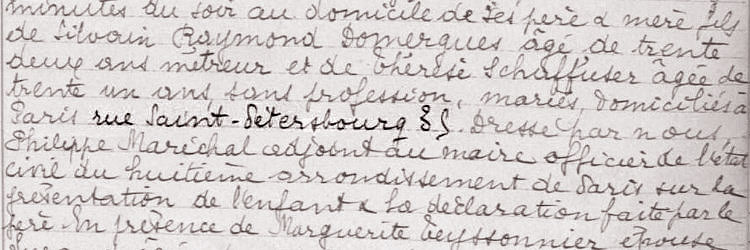 minutes du soir au domicile de ses père & mère fils
de Silvain Raymond Domergues âgé de trente
deux ans métreur et de Thérèse Schaffuser âgée de
trente un ans, sans profession, mariés domiciliés à
Paris rue Saint-Petersbourg Dressé par nous,
Philippe Maréchal adjoint au maire officier de l'état
civil du huitième arrondissement de Paris sur la
présentation de l'enfant & la déclaration faite par le
père En présence de Marguerite Veyssonnier épouse